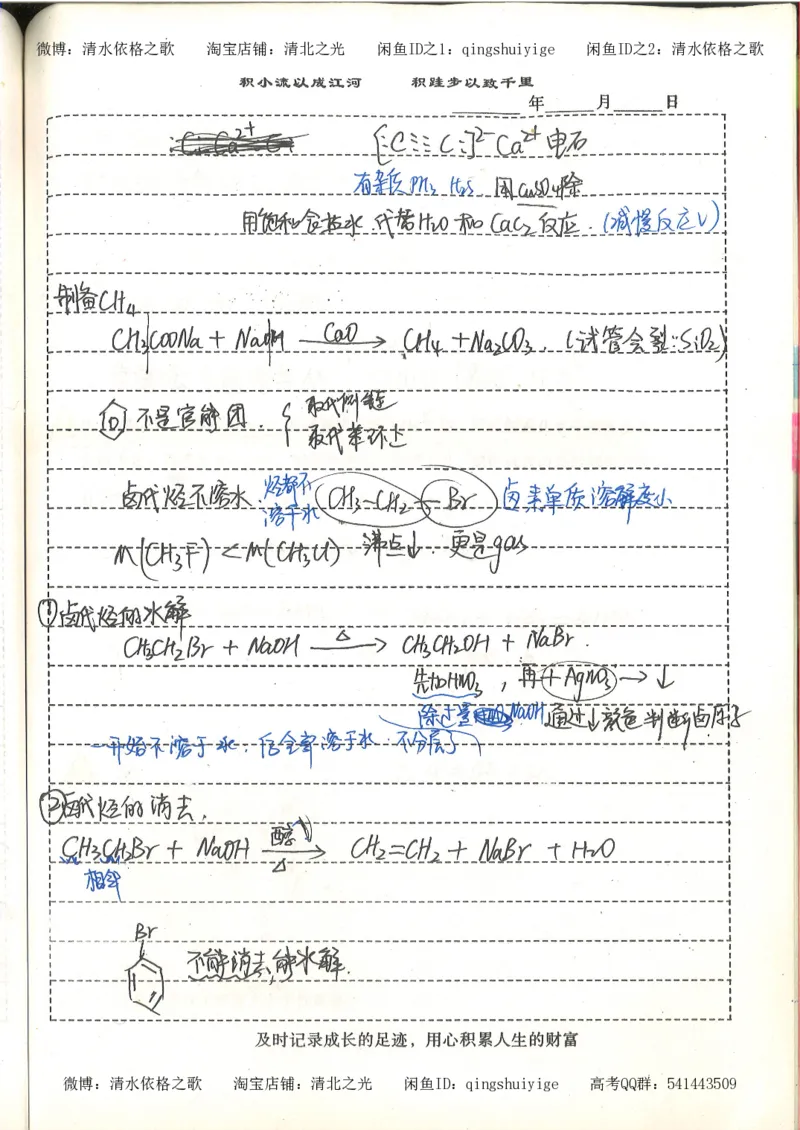 微博：清水依格之歌 淘宝店铺：清北之光 闲鱼ID之1：qingshuiyige 闲鱼ID之2：清水依格之歌
积小流以成江河 积跬步以致千里
年 月 日
[:C≡C:]²⁻Ca²⁺ 电石
有杂质PH₃ H₂S 用CuSO₄除
用饱和食盐水代替H₂O和CaC₂反应.(减慢反应V)
制备CH₄
CH₃COONa + NaOH —CaO→ CH₄ + Na₂CO₃. (试管会裂:SiO₂)
不是官能团. { 取代侧链
取代苯环上
卤代烃不溶水. 烃都不溶于水 CH₃-CH₂-Br 卤素单质溶解度小
M(CH₃F) < M(CH₃Cl) 沸点↓. 更是gas
①卤代烃的水解
CH₃CH₂Br + NaOH —△→ CH₃CH₂OH + NaBr.
先加HNO₃, 再+AgNO₃→↓
除过量NaOH 通过↓颜色判断卤原子
一开始不溶于水, 后全部溶于水 不分层了
②卤代烃的消去.
CH₃CH₂Br + NaOH —醇 △→ CH₂=CH₂ + NaBr + H₂O
相邻
Br
不能消去,能水解.
及时记录成长的足迹，用心积累人生的财富
微博：清水依格之歌 淘宝店铺：清北之光 闲鱼ID：qingshuiyige 高考QQ群：541443509